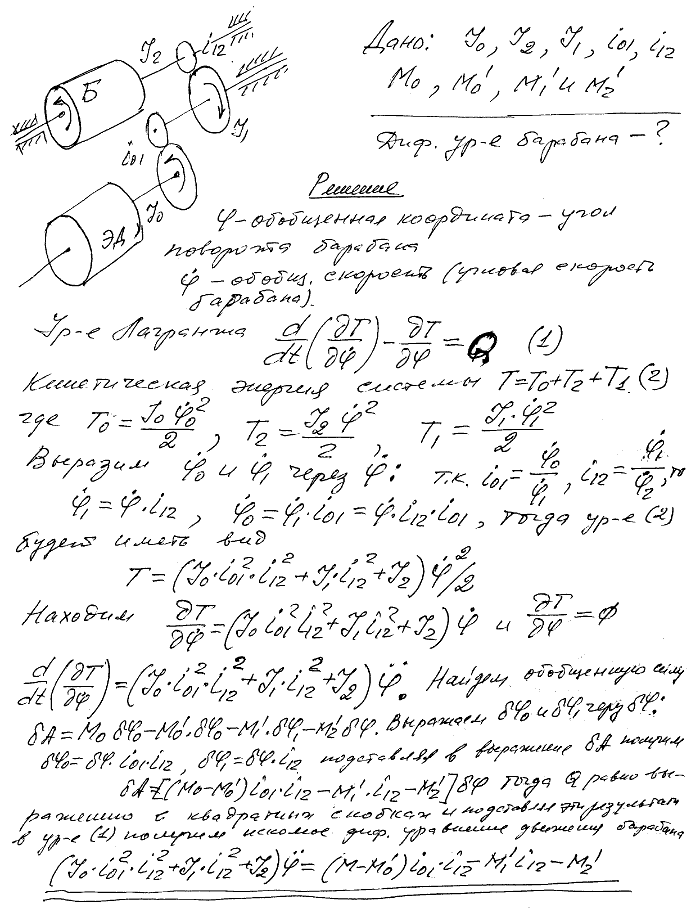 J₂ i₁₂
Б
J₁
i₀₁
J₀
ЭД
Дано: J₀, J₂, J₁, i₀₁, i₁₂
M₀, M₀', M₁' и M₂'
Диф. ур-е барабана – ?
Решение
φ – обобщенная координата – угол
поворота барабана
φ̇ – обобщ. скорость (угловая скорость
барабана).
Ур-е Лагранжа d/dt(∂T/∂φ̇) − ∂T/∂φ = Q (1)
Кинетическая энергия системы T=T₀+T₂+T₁ (2)
где T₀ = J₀φ̇₀²/2, T₂ = J₂φ̇²/2, T₁ = J₁·φ̇₁²/2
Выразим φ̇₀ и φ̇₁ через φ̇: т.к. i₀₁ = φ̇₀/φ̇₁, i₁₂ = φ̇₁/φ̇₂, то
φ̇₁ = φ̇·i₁₂, φ̇₀ = φ̇₁·i₀₁ = φ̇·i₁₂·i₀₁, тогда ур-е (2)
будет иметь вид
T = (J₀·i₀₁²·i₁₂² + J₁·i₁₂² + J₂) φ̇²/2
Находим ∂T/∂φ̇ = (J₀i₀₁²i₁₂² + J₁i₁₂² + J₂) φ̇ и ∂T/∂φ = 0
d/dt(∂T/∂φ̇) = (J₀·i₀₁²·i₁₂² + J₁·i₁₂² + J₂) φ̈. Найдем обобщенную силу
δA = M₀δφ₀ − M₀'·δφ₀ − M₁'·δφ₁ − M₂'δφ. Выражаем δφ₀ и δφ₁ через δφ:
δφ₀ = δφ·i₀₁i₁₂, δφ₁ = δφ·i₁₂ подставляя в выражение δA получим
δA = [(M₀−M₀')i₀₁i₁₂ − M₁'·i₁₂ − M₂']δφ тогда Q равно вы-
ражению в квадратных скобках и подставляя эти результаты
в ур-е (1) получим искомое диф. уравнение движения барабана
(J₀·i₀₁²·i₁₂² + J₁·i₁₂² + J₂)φ̈ = (M−M₀')i₀₁·i₁₂ − M₁'i₁₂ − M₂'